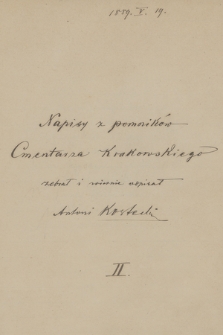 1889. V. 19.
Napisy z pomników
Cmentarza Krakowskiego
zebrał i wiernie wypisał
Antoni Kostecki
II.